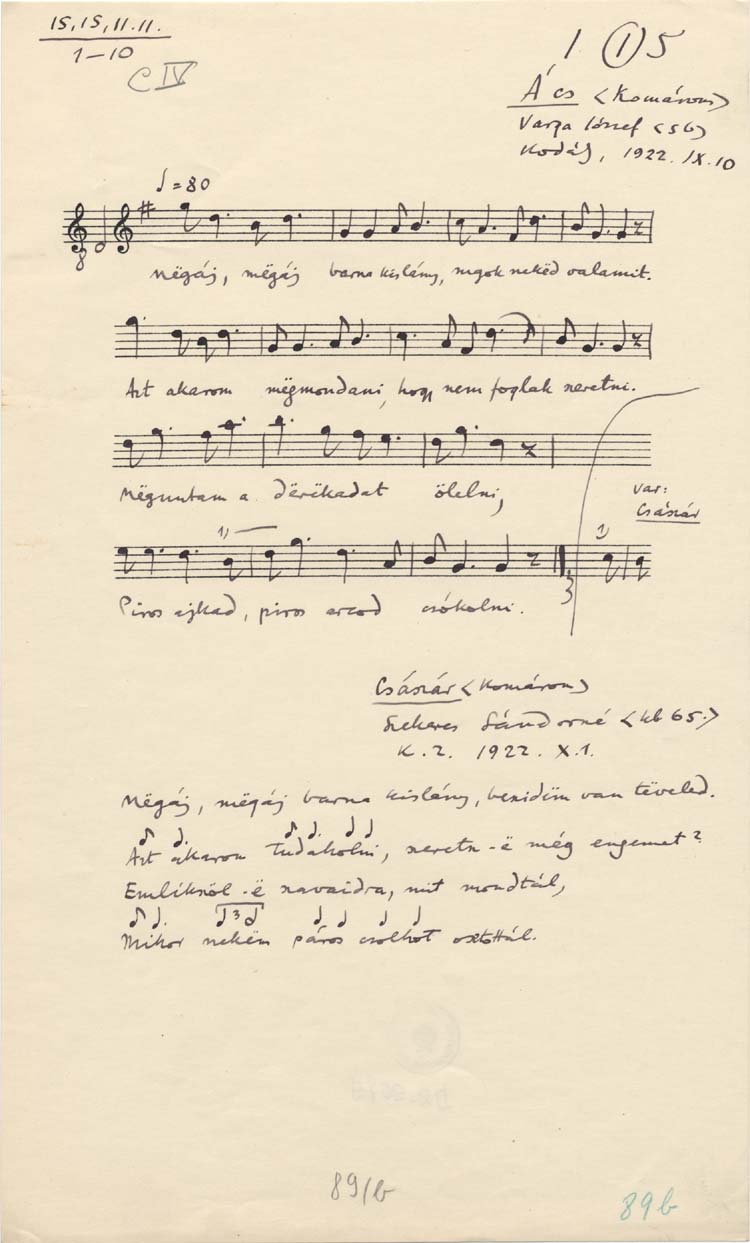 15, 15, 11. 11.
1–10
C IV
1 ① 5
Ács <Komárom>
Varga József <56>
Kodály, 1922. IX. 10
♩=80
Mëgájj, mëgájj barna kislány, valamit.
Azt akarom mëgmondani, hogy nem foglak szeretni.
Mëguntam a dërëkadat ölelni,
var:
Császár
1)
1)
Piros ajkad, piros arcod csókolni.
Császár <Komárom>
Szekeres Sándorné <kb 65.>
K. Z. 1922. X. 1.
Mëgájj, mëgájj barna kislány, beszidëm van tëveled.
Azt akarom tudakolni, szeretsz-ë még engemet?
Emlíkszöl-ë szavaidra, mit mondtál,
3
Mikor nekëm páros csókot osztottál.
89/b
89b